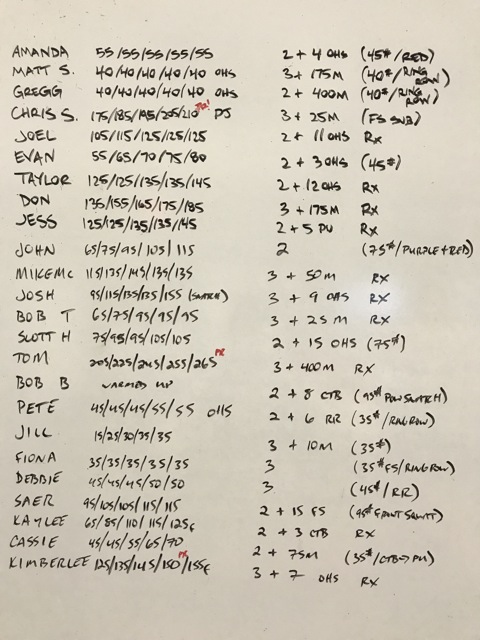 AMANDA 55/55/55/55/55 2 + 4 OHS (45#/RED)
MATT S. 40/40/40/40/40 OHS 3 + 175M (40#/RING ROW)
GREGG 40/40/40/40/40 OHS 2 + 400M (40#/RING ROW)
CHRIS S. 175/185/195/205/210 PR! PJ 3 + 25M (FS SUB)
JOEL 105/115/125/125/125 2 + 11 OHS RX
EVAN 55/65/70/75/80 2 + 3 OHS (45#)
TAYLOR 125/125/135/135/145 2 + 12 OHS RX
DON 135/155/165/175/185 3 + 175M RX
JESS 125/125/135/135/145 2 + 5 PU RX
JOHN 65/75/95/105/115 2 (75#/PURPLE+RED)
MIKE MC 115/135/145/135/135 3 + 50M RX
JOSH 95/115/135/135/155 (SNATCH) 3 + 9 OHS RX
BOB T 65/75/95/95/95 3 + 25M RX
SCOTT H 75/95/95/105/105 2 + 15 OHS (75#)
TOM 205/225/245/255/265 PR 3 + 400M RX
BOB B WARMED UP 2 + 8 CTB (95# POW SNATCH)
PETE 45/45/45/55/55 OHS 2 + 6 RR (35#/RING ROW)
JILL 15/25/30/35/35 3 + 10M (35#)
FIONA 35/35/35/35/35 3 (35# FS/RING ROW)
DEBBIE 45/45/45/50/50 3 (45#/RR)
SAER 95/105/105/115/115 2 + 15 FS (95# FRONT SQUAT)
KAYLEE 65/85/110/115/125F 2 + 3 CTB RX
CASSIE 45/45/55/65/70 2 + 75M (35#/CTB→PU)
KIMBERLEE 125/135/145/150 PR/155F 3 + 7 OHS RX